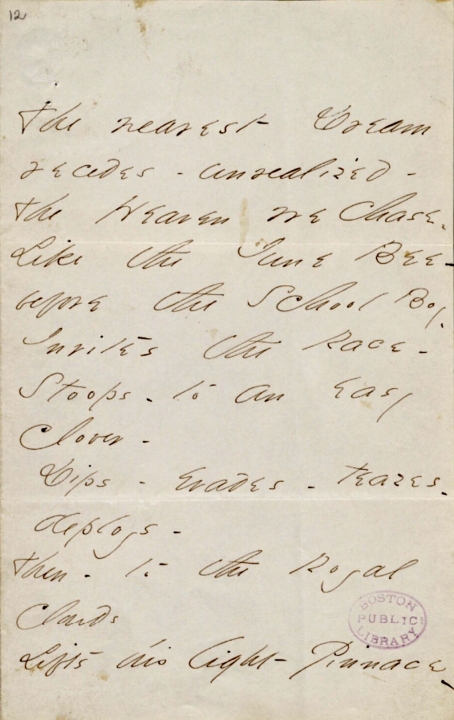 12
The nearest Dream
recedes - unrealized -
The Heaven we chase -
Like the June Bee -
before the School Boy -
Invites the Race -
Stoops - to an easy
Clover -
Dips - evades - teazes -
deploys -
Then - to the Royal
Clouds
Lifts his light Pinnace -
BOSTON
PUBLIC
LIBRARY